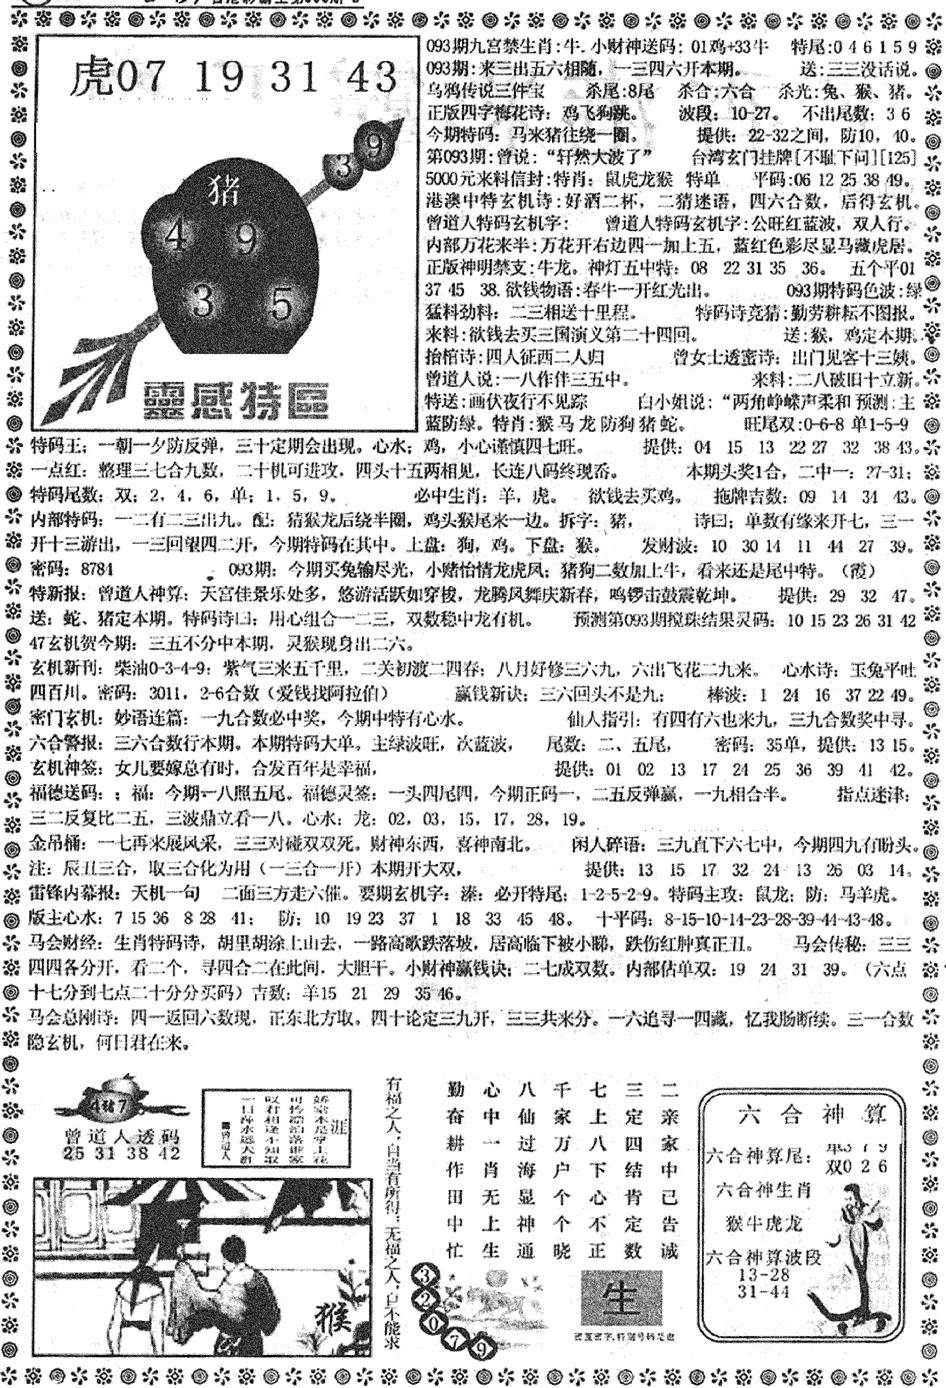 虎07 19 31 43
猪
9
3
4 9
3 5
靈感特區
093期九宫禁生肖:牛. 小财神送码: 01鸡+33牛 特尾:0 4 6 1 5 9
093期:来三出五六相随，一三四六开本期。 送:三三没话说。
乌鸦传说三件宝 杀尾:8尾 杀合:六合 杀光:兔、猴、猪。
正版四字梅花诗: 鸡飞狗跳。 波段: 10-27。 不出尾数: 3 6
今期特码: 马来猪往绕一圈。 提供: 22-32之间, 防10, 40。
第093期:曾说: “轩然大波了” 台湾玄门挂牌[不耻下问][125]
5000元来料信封:特肖: 鼠虎龙猴 特单 平码:06 12 25 38 49。
港澳中特玄机诗:好酒二杯，二猜迷语，四六合数，后得玄机。
曾道人特码玄机字: 曾道人特码玄机字:公旺红蓝波，双人行。
内部万花来半:万花开右边四一加上五，蓝红色彩尽显马藏虎居。
正版神明禁支:牛龙。神灯五中特: 08 22 31 35 36。 五个平01
37 45 38. 欲钱物语:春牛一开红光出。 093期特码色波:绿
猛料劲料: 二三相送十里程。 特码诗竞猜:勤劳耕耘不图报。
来料:欲钱去买三国演义第二十四回。 送:猴, 鸡定本期。
抬棺诗:四人征西二人归 曾女士透蜜诗: 出门见客十三姨。
曾道人说:一八作伴三五中。 来料:二八破旧十立新。
特送:画伏夜行不见踪 白小姐说: “两角峥嵘声柔和 预测:主
蓝防绿。特肖:猴 马 龙 防狗 猪 蛇。 旺尾双:0-6-8 单1-5-9
特码王; 一朝一夕防反弹, 三十定期会出现。心水; 鸡, 小心谨慎四七旺。 提供: 04 15 13 22 27 32 38 43。
一点红: 整理三七合九数, 二十机可进攻, 四头十五两相见, 长连八码终现乔。 本期头奖1合, 二中一: 27-31;
特码尾数: 双; 2, 4, 6, 单; 1, 5, 9。 必中生肖: 羊, 虎。 欲钱去买鸡。 拖牌吉数: 09 14 34 43。
内部特码: 一二有二三出九。配: 猪猴龙后绕半圈, 鸡头猴尾来一边。拆字: 猪, 诗曰; 单数有缘来开七, 三一
开十三游出, 一三回望四二开, 今期特码在其中。上盘: 狗, 鸡。下盘: 猴。 发财波: 10 30 14 11 44 27 39。
密码: 8784 093期: 今期买兔输尽光, 小赌怡情龙虎凤; 猪狗二数加上牛, 看来还是尾中特。(霞)
特新报: 曾道人神算: 天宫佳景乐处多, 悠游活跃如穿梭, 龙腾风舞庆新春, 鸣锣击鼓震乾坤。 提供: 29 32 47。
送: 蛇、猪定本期。特码诗曰: 用心组合一二三, 双数稳中龙有机。 预测第093期搅珠结果灵码: 10 15 23 26 31 42
47玄机贺今期: 三五不分中本期, 灵猴现身出二六。
玄机新刊: 柴油0-3-4-9: 紫气三来五千里, 二关初渡二四春; 八月好修三六九, 六出飞花二九来。 心水诗: 玉兔平吐
四百川。密码: 3011, 2-6合数 (爱钱找阿拉伯) 赢钱新诀; 三六回头不是九; 棒波: 1 24 16 37 22 49。
密门玄机: 妙语连篇: 一九合数必中奖, 今期中特有心水。 仙人指引: 有四有六也来九, 三九合数奖中寻。
六合警报: 三六合数行本期。本期特码大单。主绿波旺, 次蓝波, 尾数: 二、五尾, 密码: 35单, 提供: 13 15。
玄机神签: 女儿要嫁总有时, 合发百年是幸福, 提供: 01 02 13 17 24 25 36 39 41 42。
福德送码: ; 福: 今期一八照五尾。福德灵签: 一头四尾四, 今期正码一, 二五反弹赢, 一九相合半。 指点迷津:
三二反复比二五, 三波鼎立看一八。心水: 龙: 02, 03, 15, 17, 28, 19。
金吊桶: 一七再来展风采, 三三对碰双双死。财神东西, 喜神南北。 闲人碎语: 三九直下六七中, 今期四九有盼头。
注: 辰丑三合, 取三合化为用 (一三合一开) 本期开大双, 提供: 13 15 17 32 24 13 26 03 14。
雷锋内幕报: 天机一句 二面三方走六催。要期玄机字: 溱: 必开特尾: 1-2-5-2-9。特码主攻: 鼠龙: 防: 马羊虎。
版主心水: 7 15 36 8 28 41; 防: 10 19 23 37 1 18 33 45 48。 十平码: 8-15-10-14-23-28-39-44-43-48。
马会财经: 生肖特码诗, 胡里胡涂上山去, 一路高歌跌落坡, 居高临下被小睇, 跌伤红肿真正丑。 马会传秘: 三三
四四各分开, 看二个, 寻四合二在此间, 大胆干。小财神赢钱诀; 二七成双数。内部估单双: 19 24 31 39。(六点
十七分到七点二十分分买码) 吉数: 羊15 21 29 35 46。
马会总刚诗: 四一返回六数现, 正东北方取。四十论定三九开, 三三共来分。一六追寻一四藏, 忆我肠断续。三一合数
隐玄机, 何日君在来。
4猪7
曾道人透码
25 31 38 42
猴
有福之人, 自当有所得; 无福之人, 自不能求
勤奋耕作田中忙
心中一肖无上生
八仙过海显神通
千家万户个个晓
七上八下心不正
三定四结肯定数
二亲家中己告诚
3
2
0
7
9
生
六合神算
六合神算尾: 单3 7 9
双0 2 6
六合神生肖
猴牛虎龙
六合神算波段
13-28
31-44